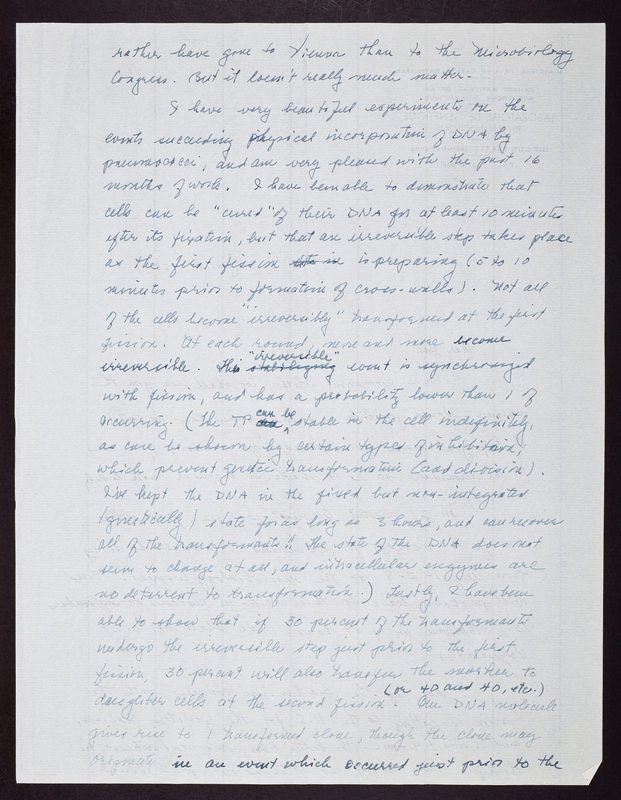 rather have gone to Vienna than to the Microbiology
Congress. But it doesn't really much matter.
I have very beautiful experiments on the
events succeeding physical incorporation of DNA by
pneumococci, and am very pleased with the past 16
months of work. I have been able to demonstrate that
cells can be "cured" of their DNA for at least 10 minutes
after its fixation, but that an irreversible step takes place
as the first fission is preparing (5 to 10
minutes prior to formation of cross-walls). Not all
of the cells become "irreversibly" transformed at the first
fission. At each round, more and more become
irreversible. This "irreversible" event is synchronized
with fission, and has a probability lower than 1 of
occurring. (The TP can be stable in the cell indefinitely,
as can be shown by certain types of inhibition,
which prevent genetic transformation (and division).
I've kept the DNA in the fixed but non-integrated
(genetically) state for as long as 3 hours, and can recover
all of the transformants!! The state of the DNA does not
seem to change at all, and intracellular enzymes are
no deterrent to transformation.) Lastly, I have been
able to show that if 30 percent of the transformants
undergo the irreversible step just prior to the first
fission, 30 percent will also transfer the marker to
daughter cells at the second fission. (or 40 and 40, etc.) One DNA molecule
gives rise to 1 transformed clone, though the clone may
originate in an event which occurred just prior to the